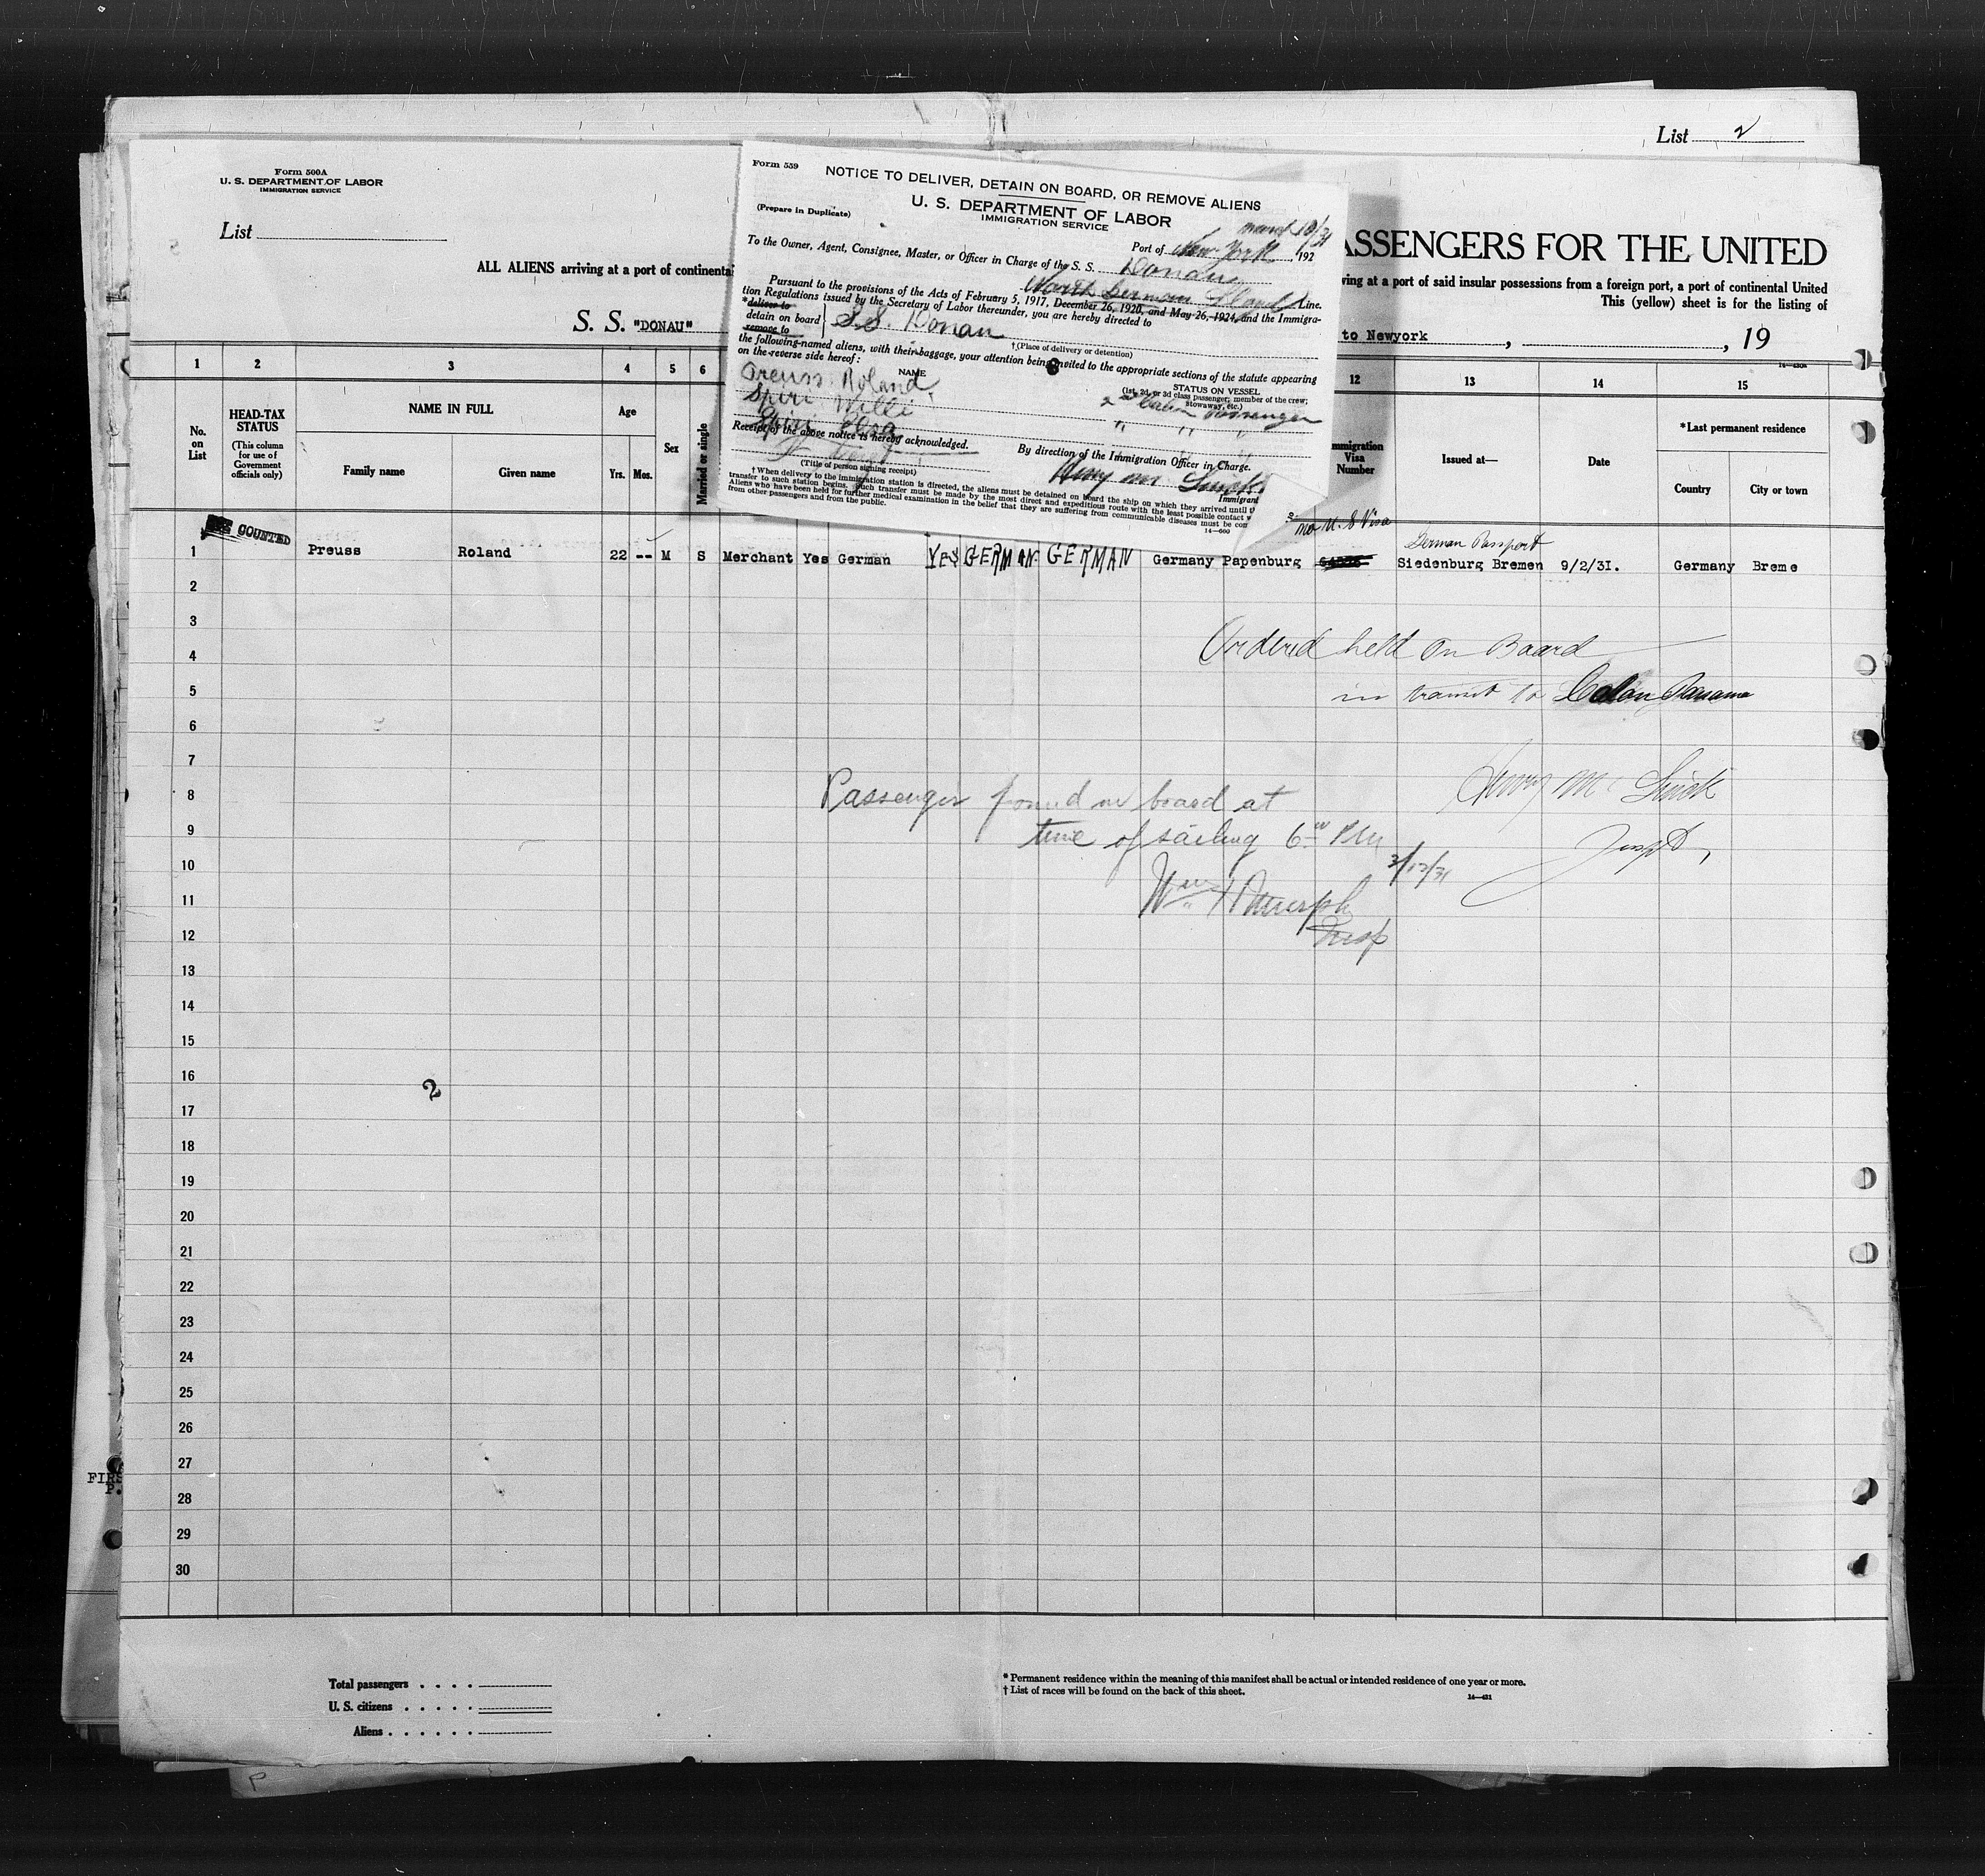 List 2
Form 500A
U. S. DEPARTMENT OF LABOR
IMMIGRATION SERVICE
List
ALL ALIENS arriving at a port of continenta
S. S. "DONAU"
Form 539
NOTICE TO DELIVER, DETAIN ON BOARD, OR REMOVE ALIENS
U. S. DEPARTMENT OF LABOR
IMMIGRATION SERVICE
(Prepare in Duplicate)
March 10/31
Port of New York, 192
To the Owner, Agent, Consignee, Master, or Officer in Charge of the S. S. Donau
North German Lloyd Line.
Pursuant to the provisions of the Acts of February 5, 1917, December 26, 1920, and May 26, 1924, and the Immigra-
tion Regulations issued by the Secretary of Labor thereunder, you are hereby directed to
*deliver to
detain on board S.S. Donau
remove to
†(Place of delivery or detention)
the following-named aliens, with their baggage, your attention being invited to the appropriate sections of the statute appearing
on the reverse side hereof:
NAME
STATUS ON VESSEL
(1st, 2d, or 3d class passenger; member of the crew;
stowaway, etc.)
Preuss Roland 2nd Cabin Passenger
Spiri Willi " " "
Spiri Elsa " "
Receipt of the above notice is hereby acknowledged.
By direction of the Immigration Officer in Charge.
(Title of person signing receipt)
Henry M
Immigrant
†When delivery to the immigration station is directed, the aliens must be detained on board the ship on which they arrived until
transfer to such station begins. Such transfer must be made by the most direct and expeditious route with the least possible contact
Aliens who have been held for further medical examination in the belief that they are suffering from communicable diseases must be
from other passengers and from the public.
14—600
ASSENGERS FOR THE UNITED
ving at a port of said insular possessions from a foreign port, a port of continental United
This (yellow) sheet is for the listing of
to Newyork , , 19
14—430a
1 2 3 4 5 6 12 13 14 15
No. on List
HEAD-TAX STATUS
(This column for use of Government officials only)
NAME IN FULL
Family name Given name
Age
Yrs. Mos.
Sex
Married or single
mmigration Visa Number
Issued at—
Date
*Last permanent residence
Country City or town
NOT COUNTED
No U. S Visa
German Passport
1 Preuss Roland 22 -- M S Merchant Yes German YES GERMAN GERMAN Germany Papenburg Siedenburg Bremen 9/2/31. Germany Breme
2
3
Ordered held on Board
4
in transit to Colon Panama
5
6
7
Passenger found on board at
8
Henry M
time of sailing 6 PM
9
Inspt,
3/13/31
10
Wm H Murph
11
Insp
12
13
14
15
16
2
17
18
19
20
21
22
23
24
25
26
27
FIRS
P.
28
29
30
Total passengers . . . .
U. S. citizens . . . . .
Aliens . . . . . .
* Permanent residence within the meaning of this manifest shall be actual or intended residence of one year or more.
† List of races will be found on the back of this sheet.
14—431
P